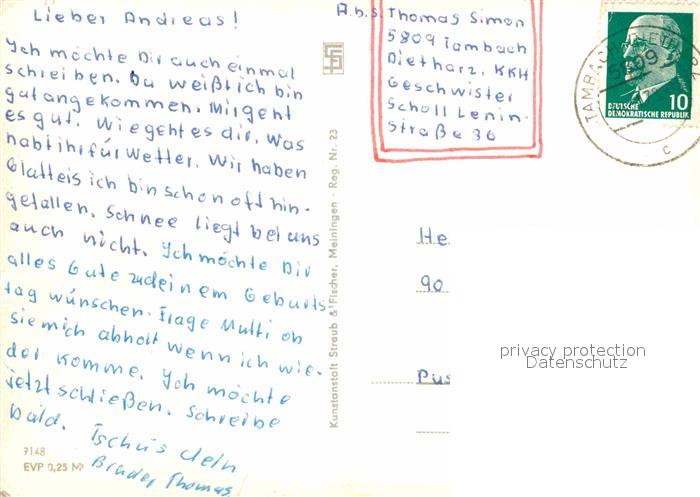 Lieber Andreas!
Ich möchte Dir auch einmal
schreiben. Du weißt ich bin
gut angekommen. Mir geht
es gut. Wie geht es dir. Was
habt ihr für Wetter. Wir haben
Glatteis ich bin schon oft hin-
gefallen. Schnee liegt bei uns
auch nicht. Ich möchte Dir
alles Gute zu deinem Geburts-
tag wünschen. Frage Mutti ob
sie mich abholt wenn ich wie-
der komme. Ich möchte
jetzt schließen. Schreibe
bald. Tschüs dein
Bruder Thomas
7148
EVP 0,25 M
Kunstanstalt Straub & Fischer, Meiningen · Reg. Nr. 23
A.b.s. Thomas Simon
5809 Tambach
Dietharz, KKH
Geschwister
Scholl Lenin-
Straße 36
TAMBACH-DIETHARZ
5809
c
DEUTSCHE
DEMOKRATISCHE REPUBLIK
10
He
90
privacy protection
Datenschutz